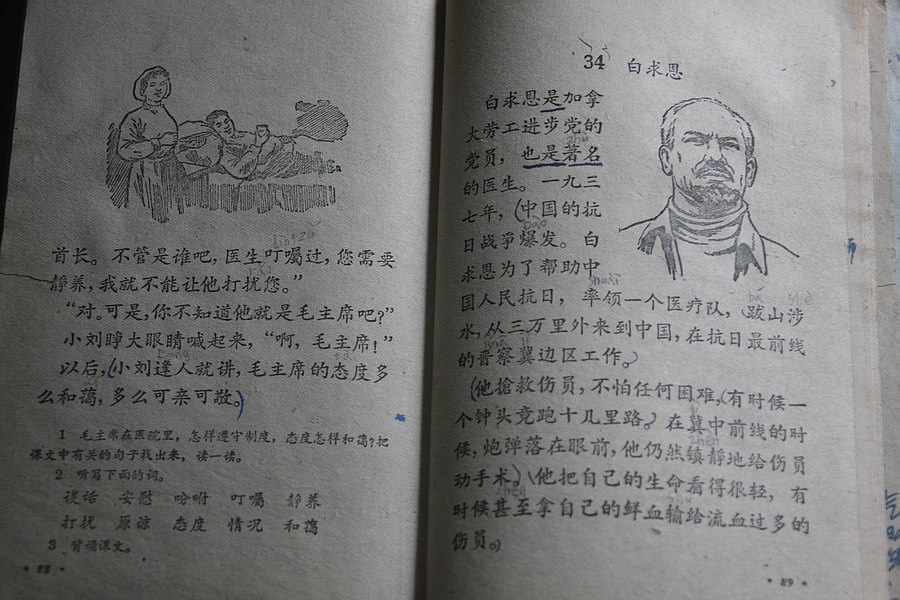 首长。不管是谁吧，医生叮嘱过，您需要
静养，我就不能让他打扰您。”
“对。可是，你不知道他就是毛主席吧？”
小刘睁大眼睛喊起来，“啊，毛主席！”
以后，小刘逢人就讲，毛主席的态度多
么和蔼，多么可亲可敬。
1 毛主席在医院里，怎样遵守制度，态度怎样和蔼？把
课文中有关的句子找出来，读一读。
2 听写下面的词。
谈话 安慰 吩咐 叮嘱 静养
打扰 原谅 态度 情况 和蔼
3 背诵课文。
· 88 ·
34 白求恩
白求恩是加拿
大劳工进步党的
党员，也是著名
的医生。一九三
七年，中国的抗
日战争爆发。白
求恩为了帮助中
国人民抗日，率领一个医疗队，跋山涉
水，从三万里外来到中国，在抗日最前线
的晋察冀边区工作。
他抢救伤员，不怕任何困难，有时候一
个钟头竟跑十几里路。在冀中前线的时
候，炮弹落在眼前，他仍然镇静地给伤员
动手术。他把自己的生命看得很轻，有
时候甚至拿自己的鲜血输给流血过多的
伤员。
· 89 ·